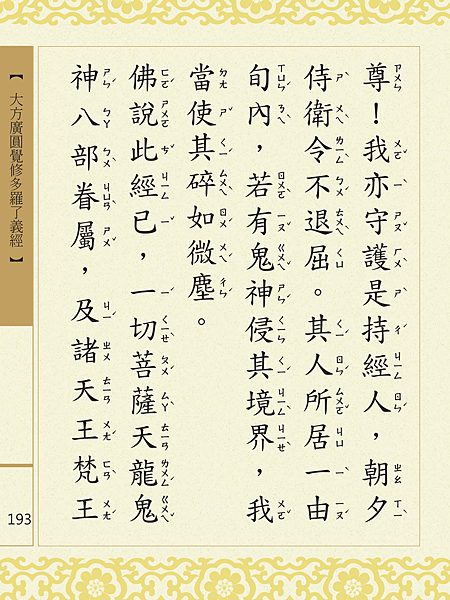 尊！我亦守護是持經人，朝夕
侍衛令不退屈。其人所居一由
旬內，若有鬼神侵其境界，我
當使其碎如微塵。
佛說此經已，一切菩薩天龍鬼
神八部眷屬，及諸天王梵王
【大方廣圓覺修多羅了義經】
193